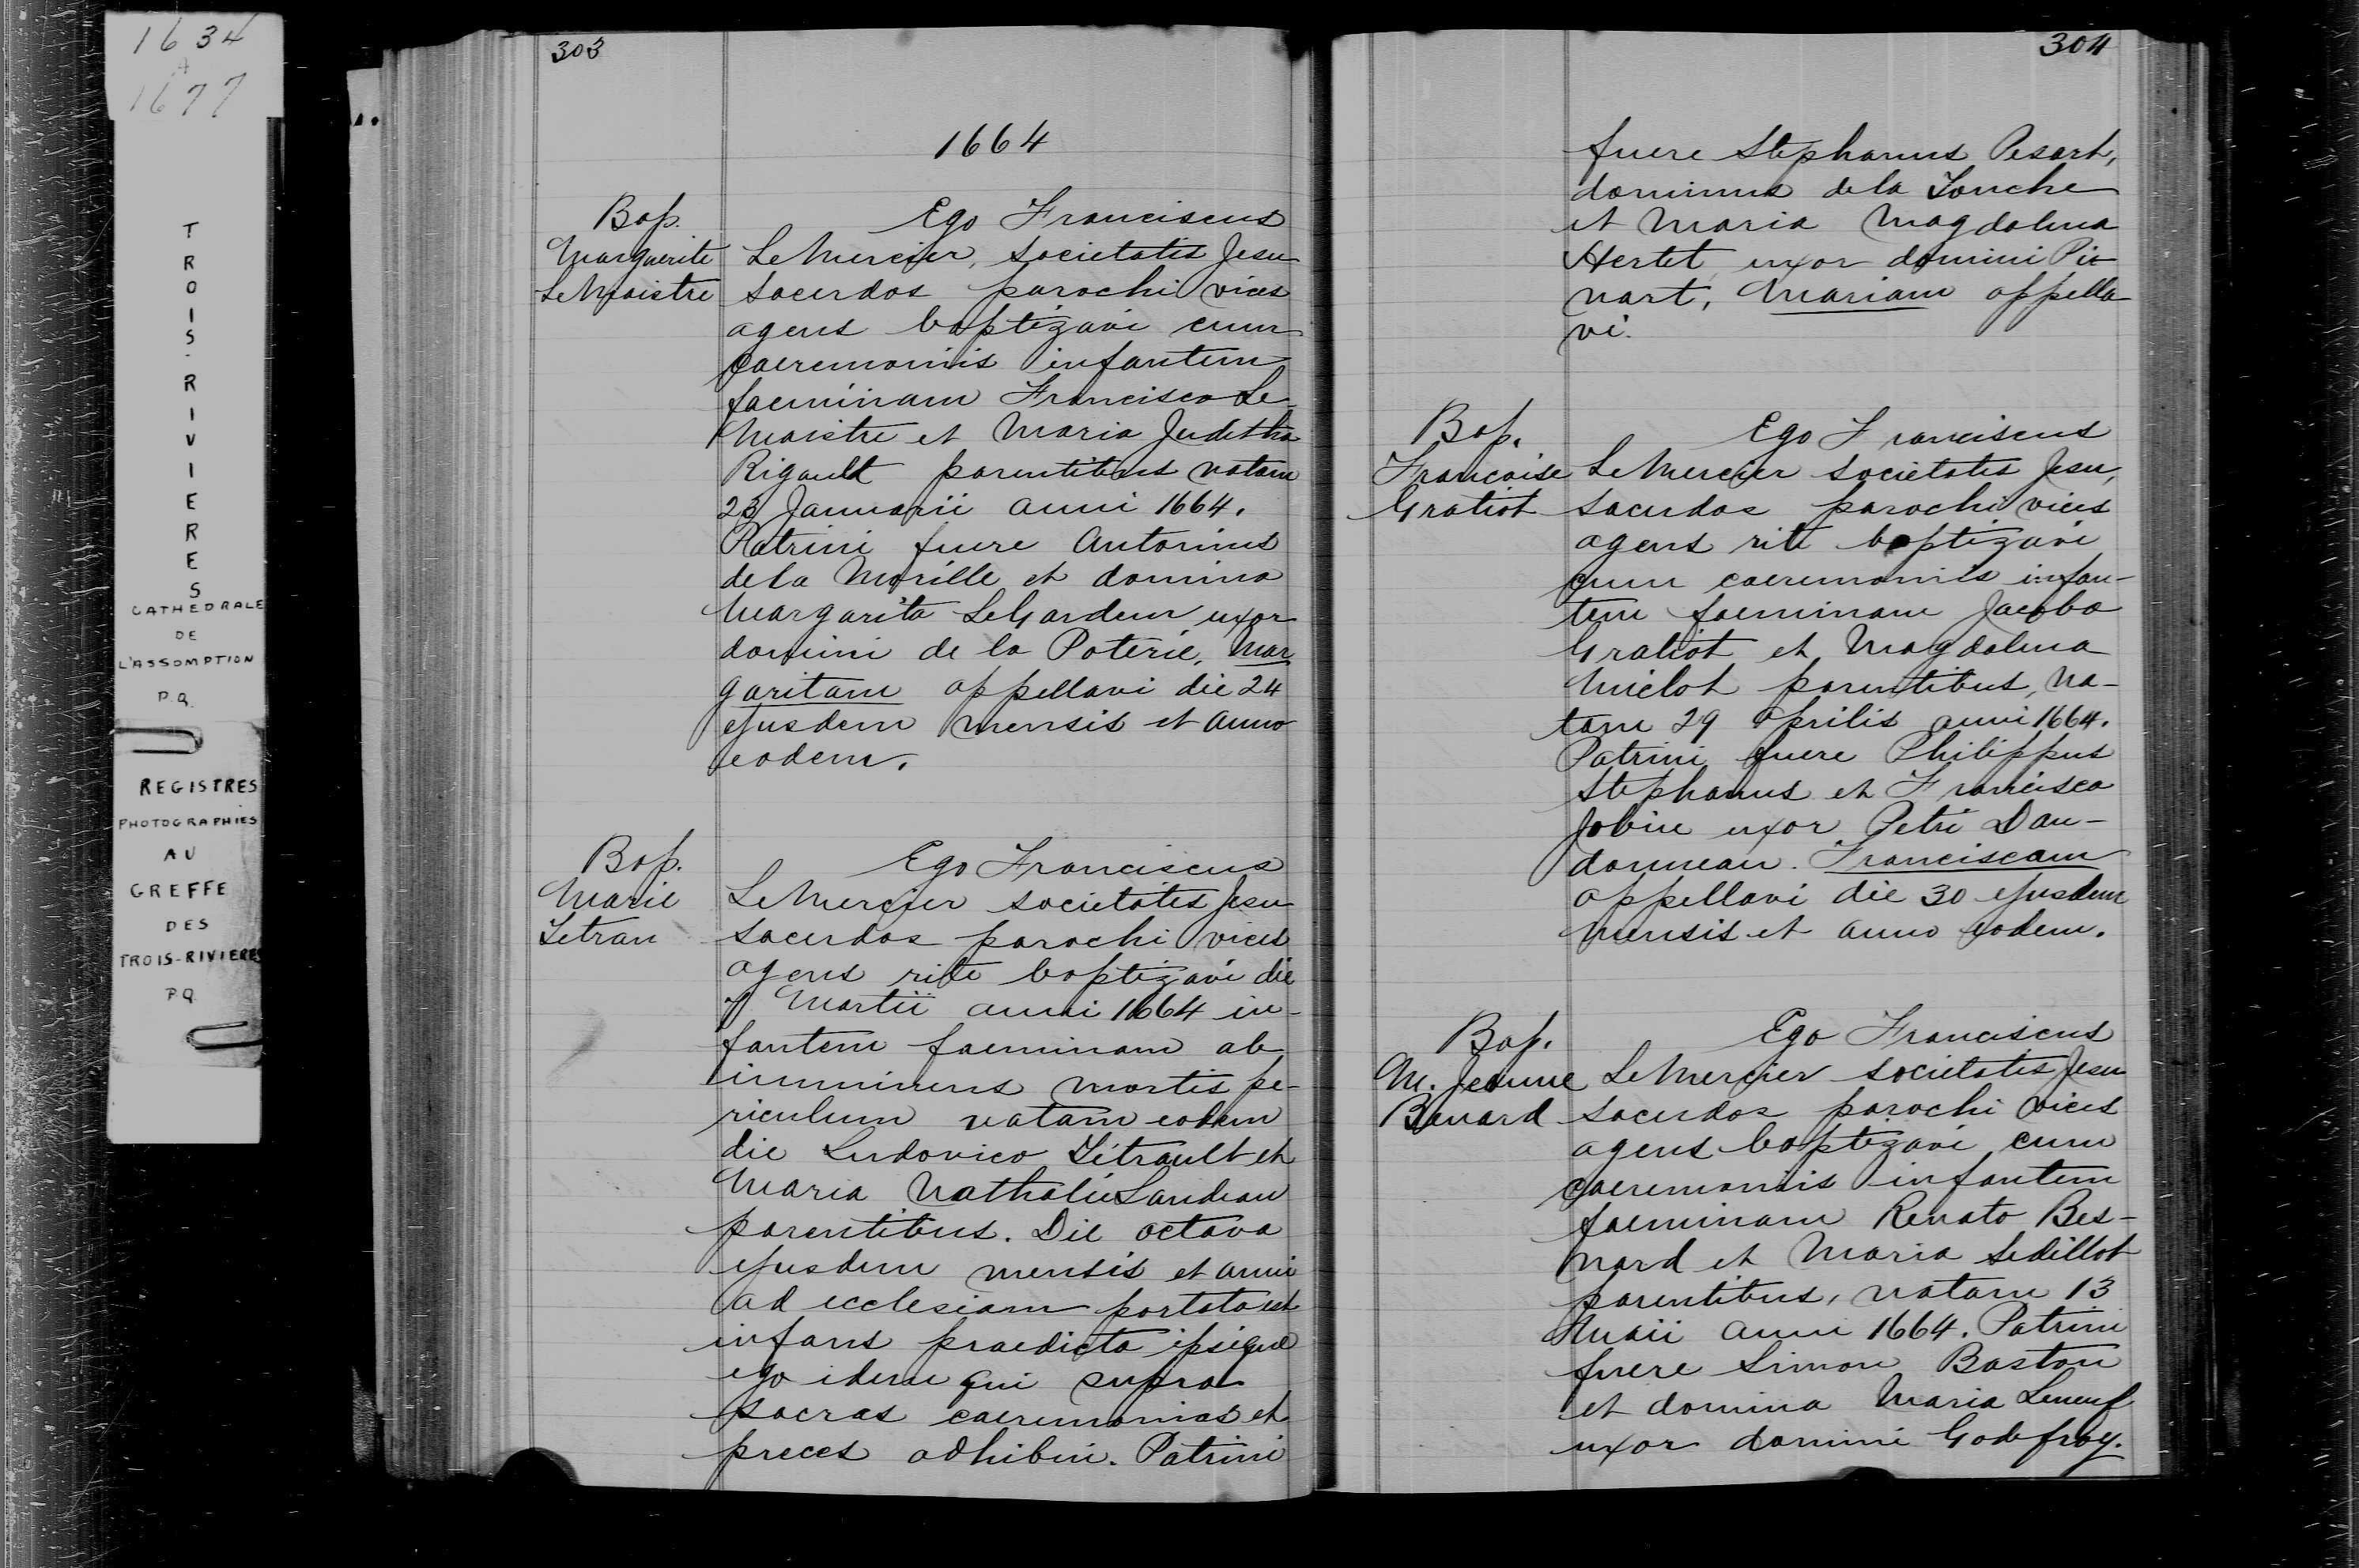 1634
à
1677
TROIS-RIVIERES
CATHEDRALE
DE
L'ASSOMPTION
P.Q.
REGISTRES
PHOTOGRAPHIES
AU
GREFFE
DES
TROIS-RIVIERES
P.Q.
303
1664
Bap.
Marguerite
LeMaistre
Ego Franciscus
LeMercier, societatis Jesu
sacerdos parochi vices
agens baptizavi cum
caeremoniis infantem
faeminam Francisco Le-
Maistre et Maria Juditha
Rigault parentibus natam
23 Januarii anni 1664.
Patrini fuere Antonius
de la Morille et domina
Margarita LeGardeur uxor
domini de la Poterie, Mar
garitam appellavi die 24
ejusdem mensis et anno
eodem.
Bap.
Marie
Tetrau
Ego Franciscus
LeMercier societatis Jesu
sacerdos parochi vices
agens rite baptizavi die
7 Martii anni 1664 in-
fantem faeminam ob
imminens mortis pe-
riculum natam eodem
die Ludovico Tétrault et
Maria Nathalie Landeau
parentibus. Die octava
ejusdem mensis et anni
ad ecclesiam portata est
infans praedicta ipsique
ego idem qui supra
sacras caeremonias et
preces adhibui. Patrini
304
fuere Stephanus Pesart,
dominus de la Touche
et Maria Magdalena
Hertet uxor domini Pi-
nart, Mariam appella
vi.
Bap.
Francoise
Gratiot
Ego Franciscus
LeMercier societatis Jesu,
sacerdos parochi vices
agens rite baptizavi
cum caeremoniis infan-
tem faeminam Jacobo
Gratiot et Magdalena
Miélot parentibus, na-
tam 29 Aprilis anni 1664.
Patrini fuere Philippus
Stephanus et Francisca
Jobine uxor Petri Dan-
donneau. Franciscam
appellavi die 30 ejusdem
mensis et anno eodem.
Bap.
M. Jeanne
Benard
Ego Franciscus
LeMercier societatis Jesu
sacerdos parochi vices
agens baptizavi cum
caeremoniis infantem
faeminam Renato Bes-
nard et Maria Sedillot
parentibus, natam 13
Maii anni 1664. Patrini
fuere Simon Baston
et domina Maria Leneuf
uxor domini Godefroy.